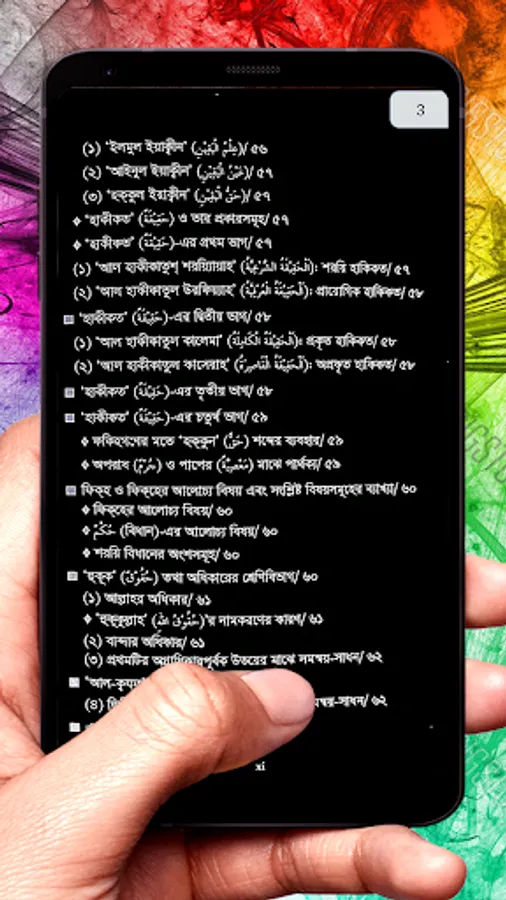 3
(১) 'ইলমুল ইয়াক্বীন' (عِلْمُ الْيَقِيْنِ)/ ৫৬
(২) 'আইনুল ইয়াক্বীন' (عَيْنُ الْيَقِيْنِ)/ ৫৭
(৩) 'হক্কুল ইয়াক্বীন' (حَقُّ الْيَقِيْنِ)/ ৫৭
❖ 'হাকীকত' (حَقِيْقَةٌ) ও তার প্রকারসমূহ/ ৫৭
❖ 'হাকীকত' (حَقِيْقَةٌ)-এর প্রথম ভাগ/ ৫৭
(১) 'আল হাকীকাতুশ্ শরয়িয়্যাহ' (اَلْحَقِيْقَةُ الشَّرْعِيَّةُ): শরয়ি হাকিকত/ ৫৭
(২) 'আল হাকীকাতুল উরফিয়্যাহ' (اَلْحَقِيْقَةُ الْعُرْفِيَّةُ): প্রায়োগিক হাকিকত/ ৫৮
'হাকীকত' (حَقِيْقَةٌ)-এর দ্বিতীয় ভাগ/ ৫৮
(১) 'আল হাকীকাতুল কামেলা' (اَلْحَقِيْقَةُ الْكَامِلَةُ): প্রকৃত হাকিকত/ ৫৮
(২) 'আল হাকীকাতুল কাসেরাহ' (اَلْحَقِيْقَةُ الْقَاصِرَةُ): অপ্রকৃত হাকিকত/ ৫৮
'হাকীকত' (حَقِيْقَةٌ)-এর তৃতীয় ভাগ/ ৫৮
'হাকীকত' (حَقِيْقَةٌ)-এর চতুর্থ ভাগ/ ৫৯
❖ ফকিহগণের মতে 'হক্কুন' (حَقٌّ) শব্দের ব্যবহার/ ৫৯
❖ অপরাধ (جُرْمٌ) ও পাপের (مَعْصِيَةٌ) মাঝে পার্থক্য/ ৫৯
ফিক্‌হ ও ফিক্‌হের আলোচ্য বিষয় এবং সংশ্লিষ্ট বিষয়সমূহের ব্যাখ্যা/ ৬০
❖ ফিক্‌হের আলোচ্য বিষয়/ ৬০
❖ حُكْمٌ (বিধান)-এর আলোচ্য বিষয়/ ৬০
❖ শরয়ি বিধানের অংশসমূহ/ ৬০
'হুকূক' (حُقُوْقٌ) তথা অধিকারের শ্রেণিবিভাগ/ ৬০
(১) আল্লাহর অধিকার/ ৬১
❖ 'হুকূকুল্লাহ' (حُقُوْقُ اللهِ)'র নামকরণের কারণ/ ৬১
(২) বান্দার অধিকার/ ৬১
(৩) প্রথমটির অগ্রাধিকারপূর্বক উভয়ের মাঝে সমন্বয়-সাধন/ ৬২
(৪) সমন্বয়-সাধন/ ৬২
xi